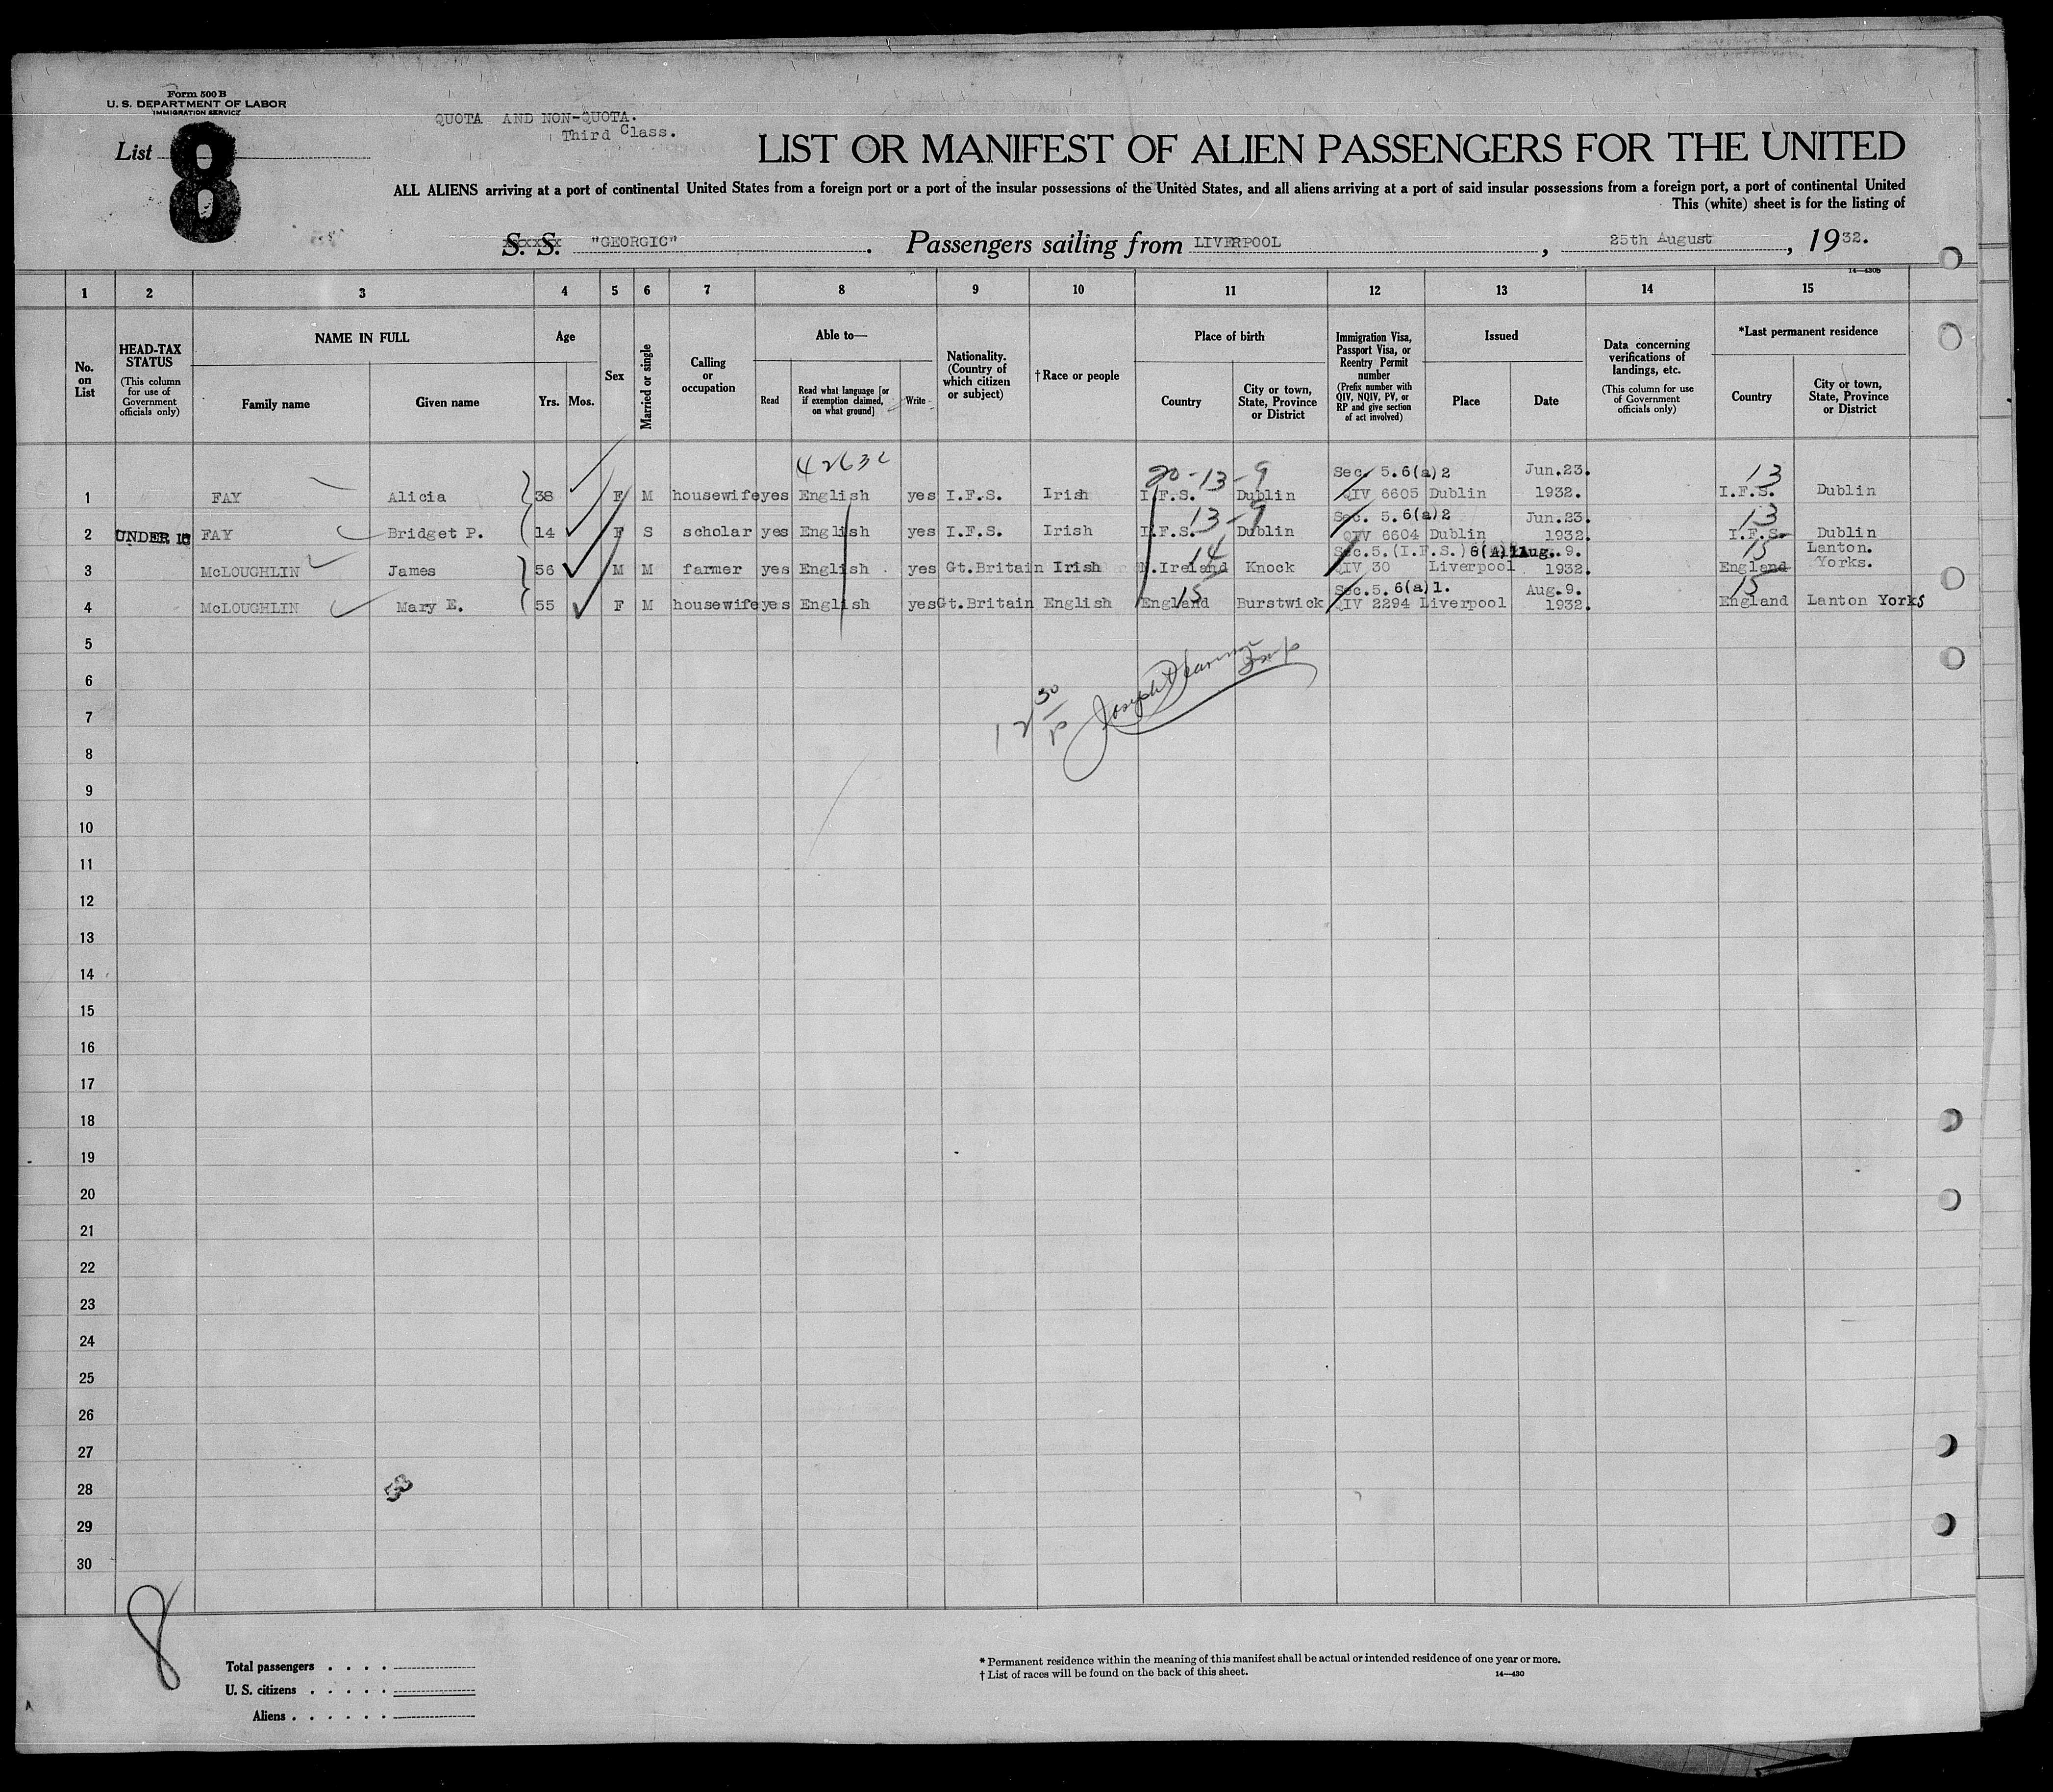 Form 500 B
U. S. DEPARTMENT OF LABOR
IMMIGRATION SERVICE
List 8
QUOTA AND NON-QUOTA.
Third Class.
LIST OR MANIFEST OF ALIEN PASSENGERS FOR THE UNITED
ALL ALIENS arriving at a port of continental United States from a foreign port or a port of the insular possessions of the United States, and all aliens arriving at a port of said insular possessions from a foreign port, a port of continental United
This (white) sheet is for the listing of
S. S. "GEORGIC". Passengers sailing from LIVERPOOL, 25th August, 1932.
14—430B
1 2 3 4 5 6 7 8 9 10 11 12 13 14 15
No. on List
HEAD-TAX STATUS (This column for use of Government officials only)
NAME IN FULL
Family name Given name
Age
Yrs. Mos.
Sex
Married or single
Calling or occupation
Able to—
Read Read what language [or if exemption claimed, on what ground] Write
Nationality. (Country of which citizen or subject)
†Race or people
Place of birth
Country City or town, State, Province or District
Immigration Visa, Passport Visa, or Reentry Permit number (Prefix number with QIV, NQIV, PV, or RP and give section of act involved)
Issued
Place Date
Data concerning verifications of landings, etc. (This column for use of Government officials only)
*Last permanent residence
Country City or town, State, Province or District
20-13-9 Sec. 5.6(a)2 Jun.23. 13
1 FAY Alicia 38 F M housewife yes English yes I.F.S. Irish I.F.S. Dublin QIV 6605 Dublin 1932. I.F.S. Dublin
13-9 Sec. 5.6(a)2 Jun.23. 13
2 UNDER 16 FAY Bridget P. 14 F S scholar yes English yes I.F.S. Irish I.F.S. Dublin QIV 6604 Dublin 1932. I.F.S. Dublin
14 Sec.5.(I.F.S.) Aug. 9. 15 Lanton.
3 McLOUGHLIN James 56 M M farmer yes English yes Gt.Britain Irish N.Ireland Knock QIV 30 Liverpool 1932. England Yorks.
15 Sec.5.6(a)1. Aug.9. 15
4 McLOUGHLIN Mary E. 55 F M housewife yes English yes Gt.Britain English England Burstwick QIV 2294 Liverpool 1932. England Lanton Yorks
5
6
7
8
9
10
11
12
13
14
15
16
17
18
19
20
21
22
23
24
25
26
27
28
29
30
8
Total passengers
U. S. citizens
Aliens
* Permanent residence within the meaning of this manifest shall be actual or intended residence of one year or more.
† List of races will be found on the back of this sheet.
14—430